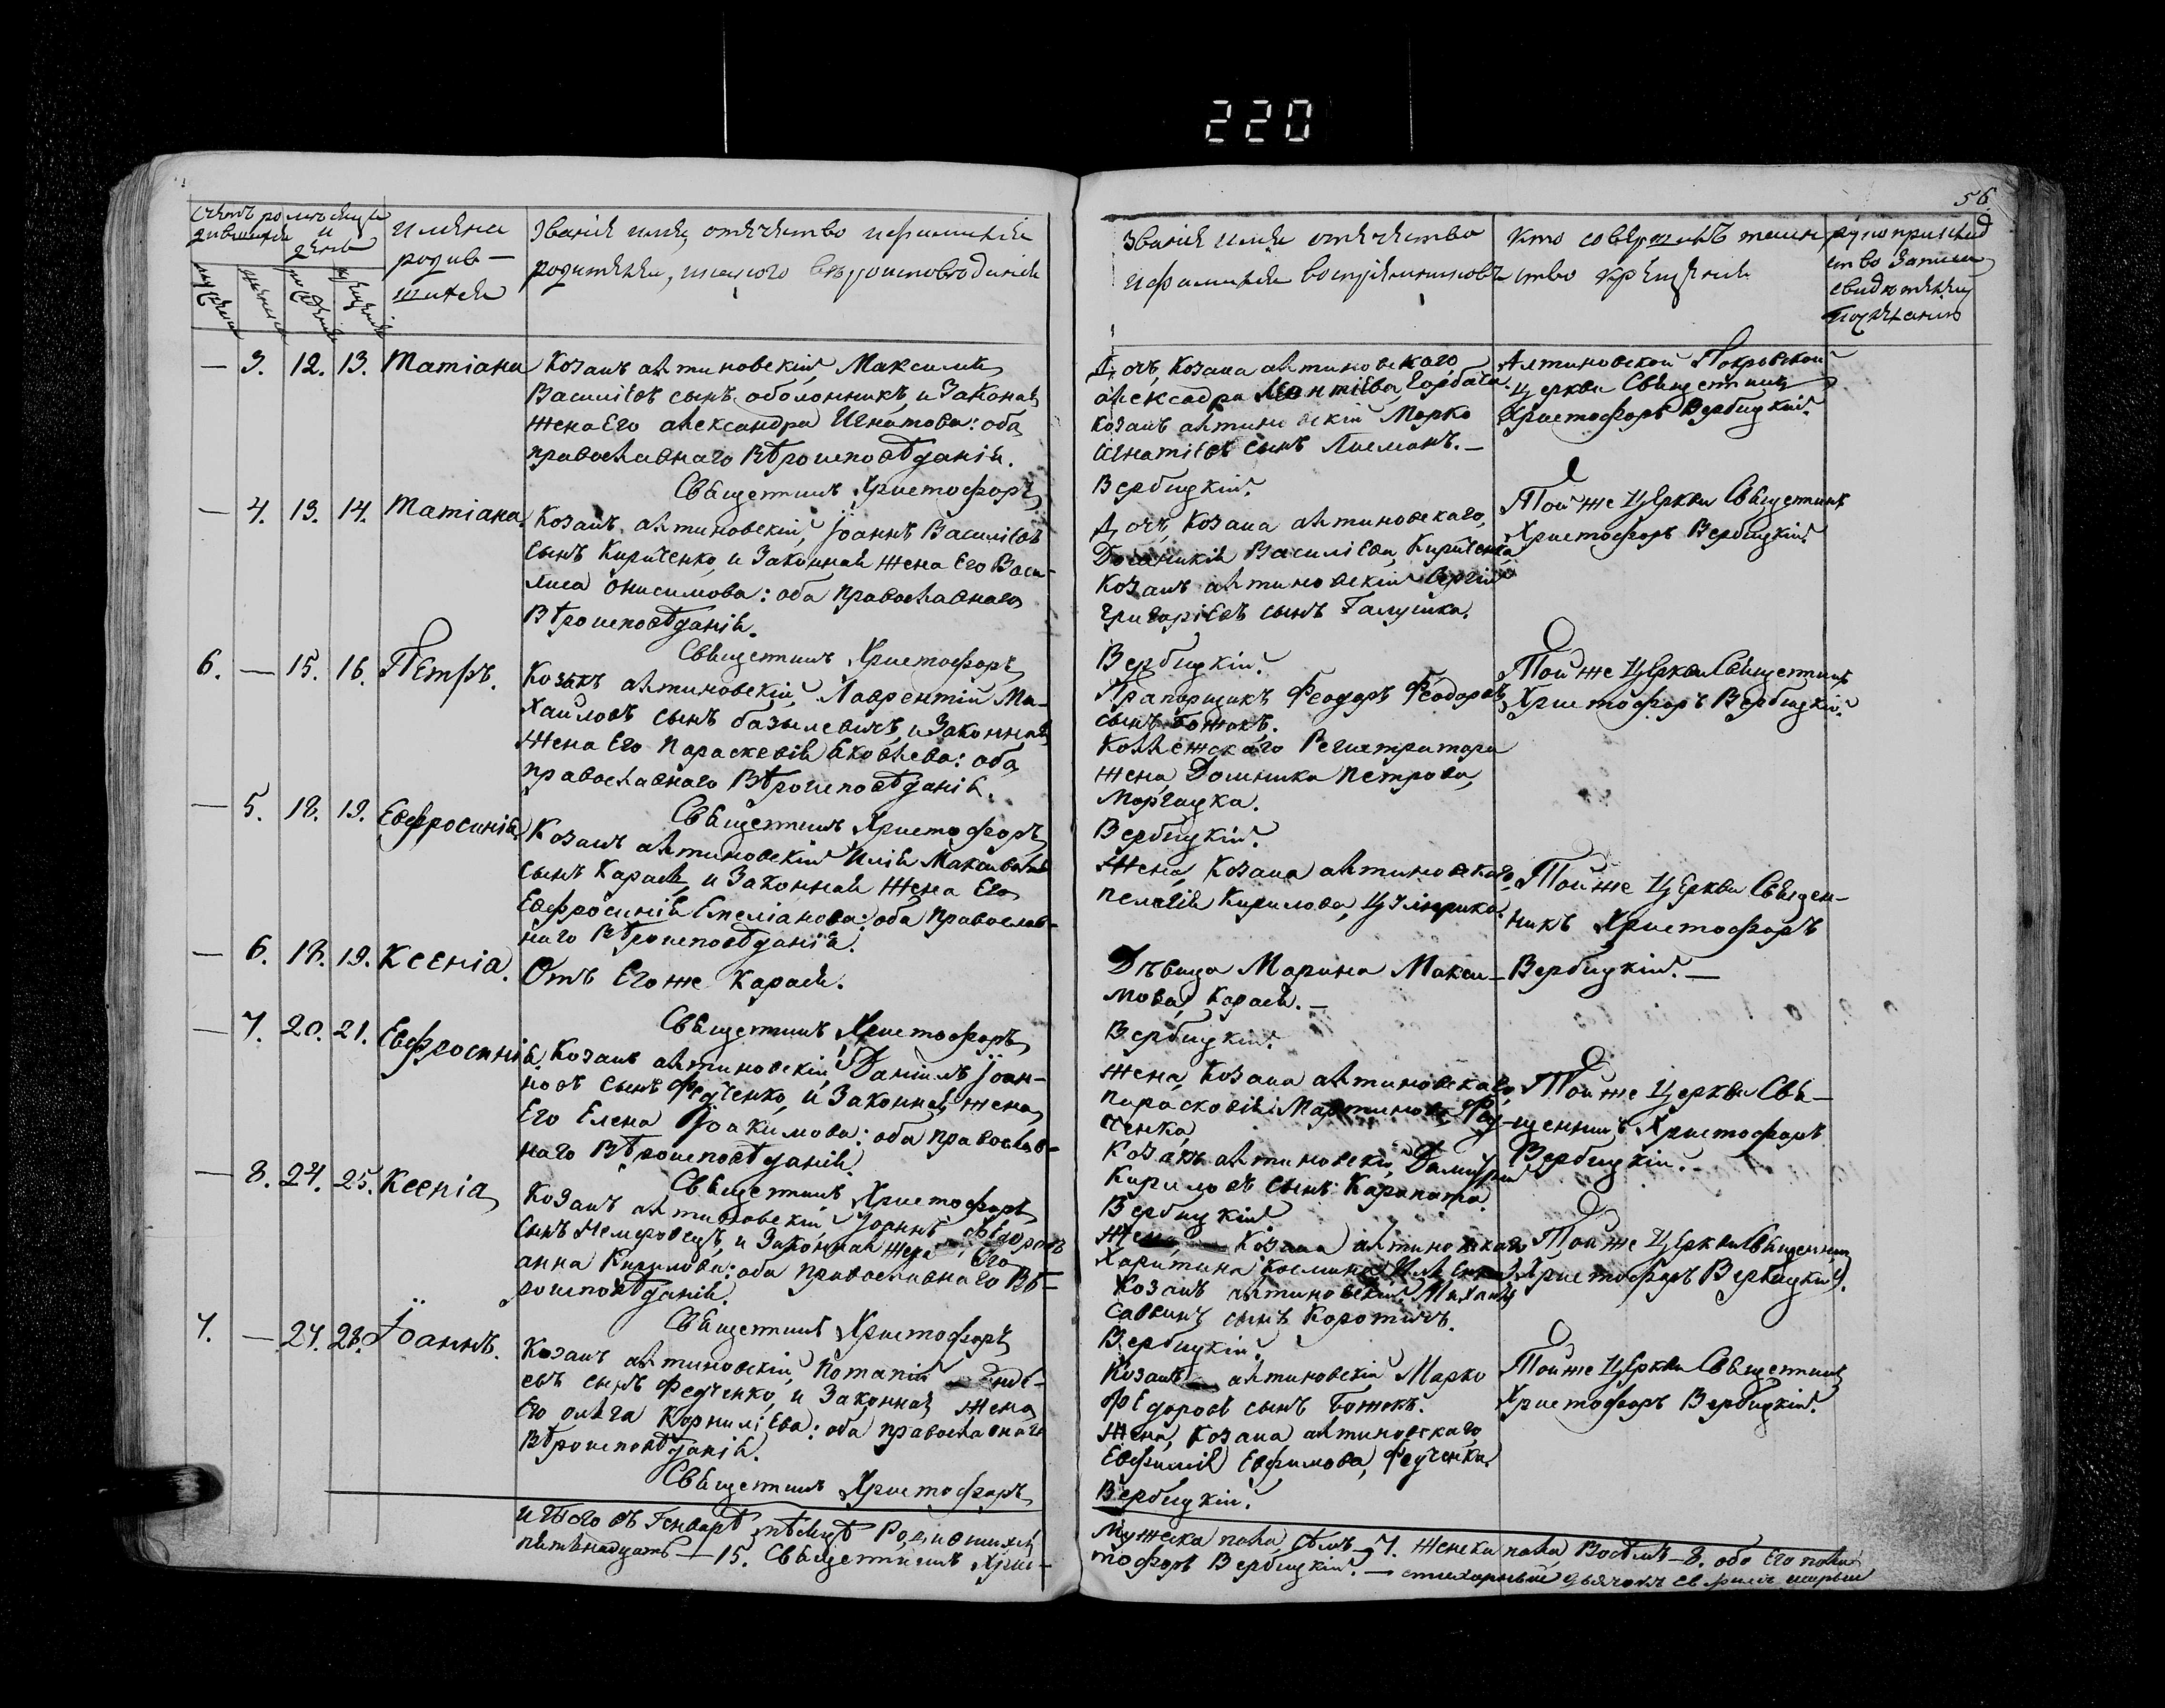 220
56
Счетъ родившихся
мѣсяцъ и день
имена родив-
шихся
Званіе имя, отечество и фамилія
родителей, и какого вѣроисповѣданія
Званіе имя отечество
и фамилія воспріемниковъ
кто совершалъ таин
ство крещенія
рукоприклад
ство записи
свидѣтелей
по желанію
— 3. 12. 13. Татіана
Козакъ алтиновскій, Максимъ
Васильевъ сынъ оболонникъ, и Законная
жена Его александра Игнатова: оба
православнаго Вѣроисповѣданія.
Священникъ Христофоръ
Дочъ, Козака алтиновскаго,
александра Горбача.
Козакъ алтиновскій Марко
Игнатіевъ сынъ Лисманъ. —
Вербицкій.
Алтиновской Покровской
церкви Священникъ
Христофоръ Вербицкій.
— 4. 13. 14. Татіана.
Козакъ алтиновскій, Іоаннъ Василіевъ
сынъ Кириченко, и Законная жена Его Васи-
лиса Онисимова: оба Православнаго
Вѣроисповѣданія.
Священникъ Христофоръ
Дочъ, Козака алтиновскаго,
Василіева, Кириченка
Козакъ алтиновскій Сергій
Григоріевъ сынъ Галушка.
Вербицкій.
Той же Церкви Священникъ
Христофоръ Вербицкій.
6. — 15. 16. Петръ.
Козакъ алтиновскій, Лаврентій Ми-
хайловъ сынъ базылевичъ, и Законная
жена Его Параскевія Яковлева: оба
православнаго Вѣроисповѣданія.
Священникъ Христофоръ
Прапорщикъ Феодоръ Феодоровъ
сынъ Божокъ.
Коллежскаго Регистратора
жена, Домника Петрова,
Вербицкій.
Той же Церкви Священникъ
Христофоръ Вербицкій.
— 5. 18. 19. Евфросинія.
Козакъ алтиновскій Илія Максимовъ
сынъ Карась, и Законная жена Его
Евфросинія Емеліанова: оба православ-
наго Вѣроисповѣданія.
Жена, Козака алтиновскаго,
Пелагія Кирилова,
Той же Церкви Священ-
никъ Христофоръ
— 6. 18. 19. Ксенія.
Отъ Его же Карася.
Священникъ Христофоръ
Дѣвица Марина Макси-
мова, Карась. —
Вербицкій.
Вербицкій. —
— 7. 20. 21. Евфросинія.
Козакъ алтиновскій, Даніилъ Іоан-
новъ сынъ Федченко, и Законная жена
Его Елена Іоакимова: оба православ-
наго Вѣроисповѣданія.
Священникъ Христофоръ
Жена, Козака алтиновскаго,
Параскевія Мартинова, Фед-
ченка,
Козакъ алтиновскій, Димитрій
Кириловъ сынъ Карапата.
Вербицкій.
Той же Церкви Свя-
щенникъ Христофоръ
Вербицкій.
— 8. 24. 25. Ксенія
Козакъ алтиновскій, Іоаннъ Федоровъ
сынъ и Законная жена Его
анна Кирилова: оба православнаго Вѣ-
роисповѣданія.
Священникъ Христофоръ
Жена Козака алтиновскаго
Харитина
Козакъ алтиновскій Михаилъ
Саввинъ сынъ Коротичъ.
Вербицкій.
Той же Церкви Священникъ
Христофоръ Вербицкій.
7. — 27. 28. Іоаннъ.
Козакъ алтиновскій, Потапій
сынъ Федченко, и Законная жена
Его ольга Корниліева: оба православнаго
Вѣроисповѣданія.
Священникъ Христофоръ
Козакъ алтиновскій Марко
Федоровъ сынъ Божокъ.
Жена, Козака алтиновскаго,
Евфимія Евфимова, Федченка.
Вербицкій.
Той же Церкви Священникъ
Христофоръ Вербицкій.
Итого въ Генварѣ мѣсяцѣ Родившихся
Мужеска пола семь — 7. Женска пола Восемь — 8. обо Его пола
пятьнадцать — 15. Священникъ Хрис-
тофоръ Вербицкій. — стихарный Дьячокъ